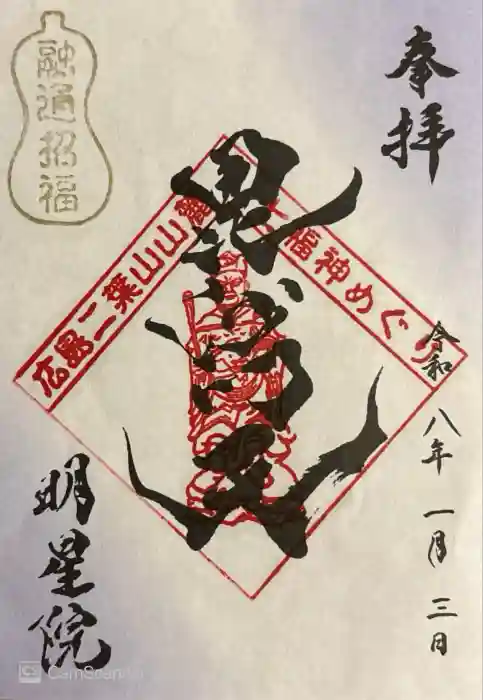 奉拝
令和八年一月三日
広島二葉山山麓
七福神めぐり
毘沙門天
融通招福
明星院
CS CamScanner